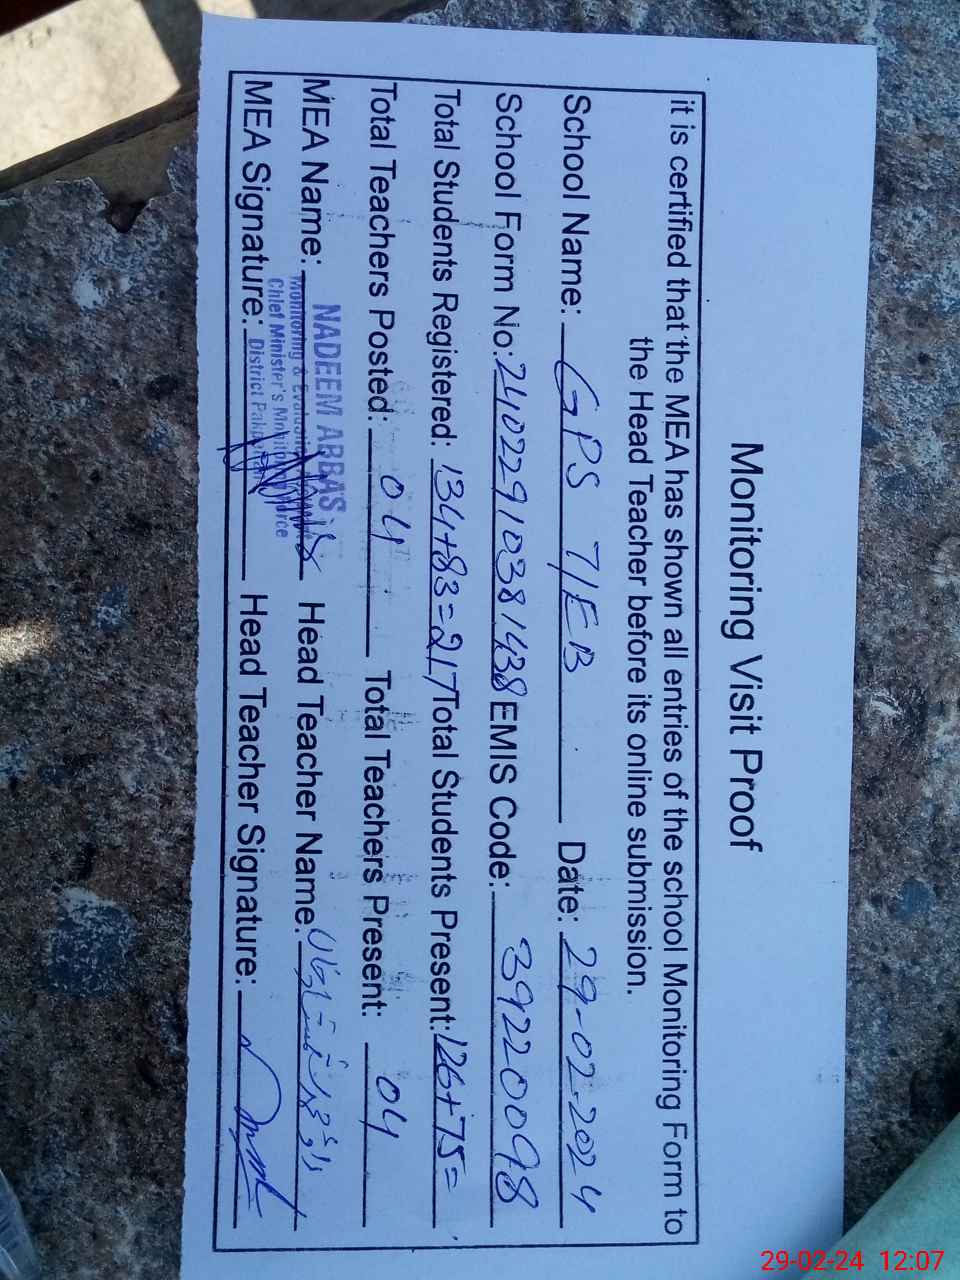 Monitoring Visit Proof
it is certified that the MEA has shown all entries of the school Monitoring Form to
the Head Teacher before its online submission.
School Name: GPS 7/EB Date: 29-02-2024
School Form No: 241022910381438 EMIS Code: 39220098
Total Students Registered: 134+83=217 Total Students Present: 126+75=
Total Teachers Posted: 04 Total Teachers Present: 04
MEA Name: Head Teacher Name:
NADEEM ABBAS
Monitoring & Evaluation
Chief Minister's Monitoring Force
District Pakpattan
MEA Signature: Head Teacher Signature:
29-02-24 12:07